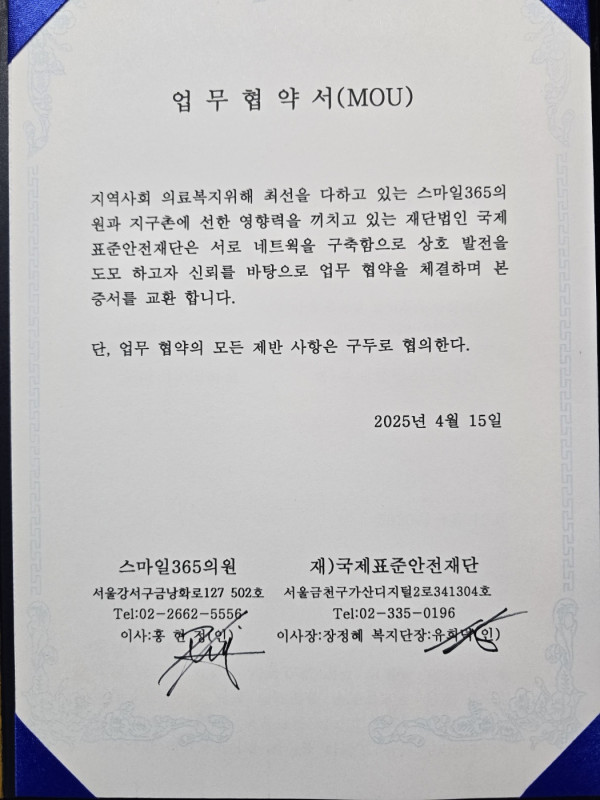 업 무 협 약 서(MOU)
지역사회 의료복지위해 최선을 다하고 있는 스마일365의
원과 지구촌에 선한 영향력을 끼치고 있는 재단법인 국제
표준안전재단은 서로 네트웍을 구축함으로 상호 발전을
도모 하고자 신뢰를 바탕으로 업무 협약을 체결하며 본
증서를 교환 합니다.
단, 업무 협약의 모든 제반 사항은 구두로 협의한다.
2025년 4월 15일
스마일365의원 재)국제표준안전재단
서울강서구금낭화로127 502호 서울금천구가산디지털2로341304호
Tel:02-2662-5556 Tel:02-335-0196
이사:홍 현 (인) 이사장:장정혜 복지단장:유희 (인)